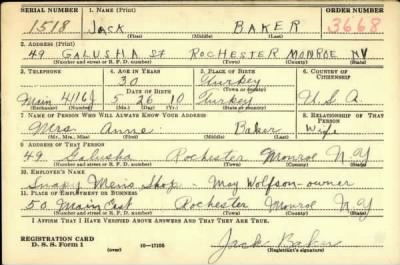 SERIAL NUMBER 1. NAME (Print) ORDER NUMBER
1518 JACK BAKER 3668
(First) (Middle) (Last)
2. ADDRESS (Print)
49 GALUSHA St ROCHESTER MONROE NY
(Number and street or R. F. D. number) (Town) (County) (State)
3. TELEPHONE 4. AGE IN YEARS 5. PLACE OF BIRTH 6. COUNTRY OF CITIZENSHIP
30 Turkey
DATE OF BIRTH (Town or county)
Main 4116J 5 26 10 Turkey U.S.A.
(Exchange) (Number) (Mo.) (Day) (Yr.) (State or country)
7. NAME OF PERSON WHO WILL ALWAYS KNOW YOUR ADDRESS 8. RELATIONSHIP OF THAT PERSON
Mrs. Anna Baker Wife
(Mr., Mrs., Miss) (First) (Middle) (Last)
9. ADDRESS OF THAT PERSON
49 Galusha Rochester Monroe N Y
(Number and street or R. F. D. number) (Town) (County) (State)
10. EMPLOYER'S NAME
Snapy Mens Shop - Moy Wolfson - owner
11. PLACE OF EMPLOYMENT OR BUSINESS
50 Main East Rochester Monroe N Y
(Number and street or R. F. D. number) (Town) (County) (State)
I AFFIRM THAT I HAVE VERIFIED ABOVE ANSWERS AND THAT THEY ARE TRUE.
REGISTRATION CARD
D. S. S. Form 1 (over) 16—17105 Jack Baker
(Registrant's signature)